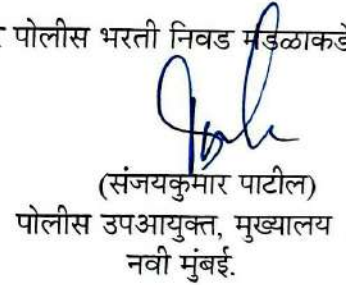 पोलीस भरती निवड मंडळाकडे
(संजयकुमार पाटील)
पोलीस उपआयुक्त, मुख्यालय
नवी मुंबई.